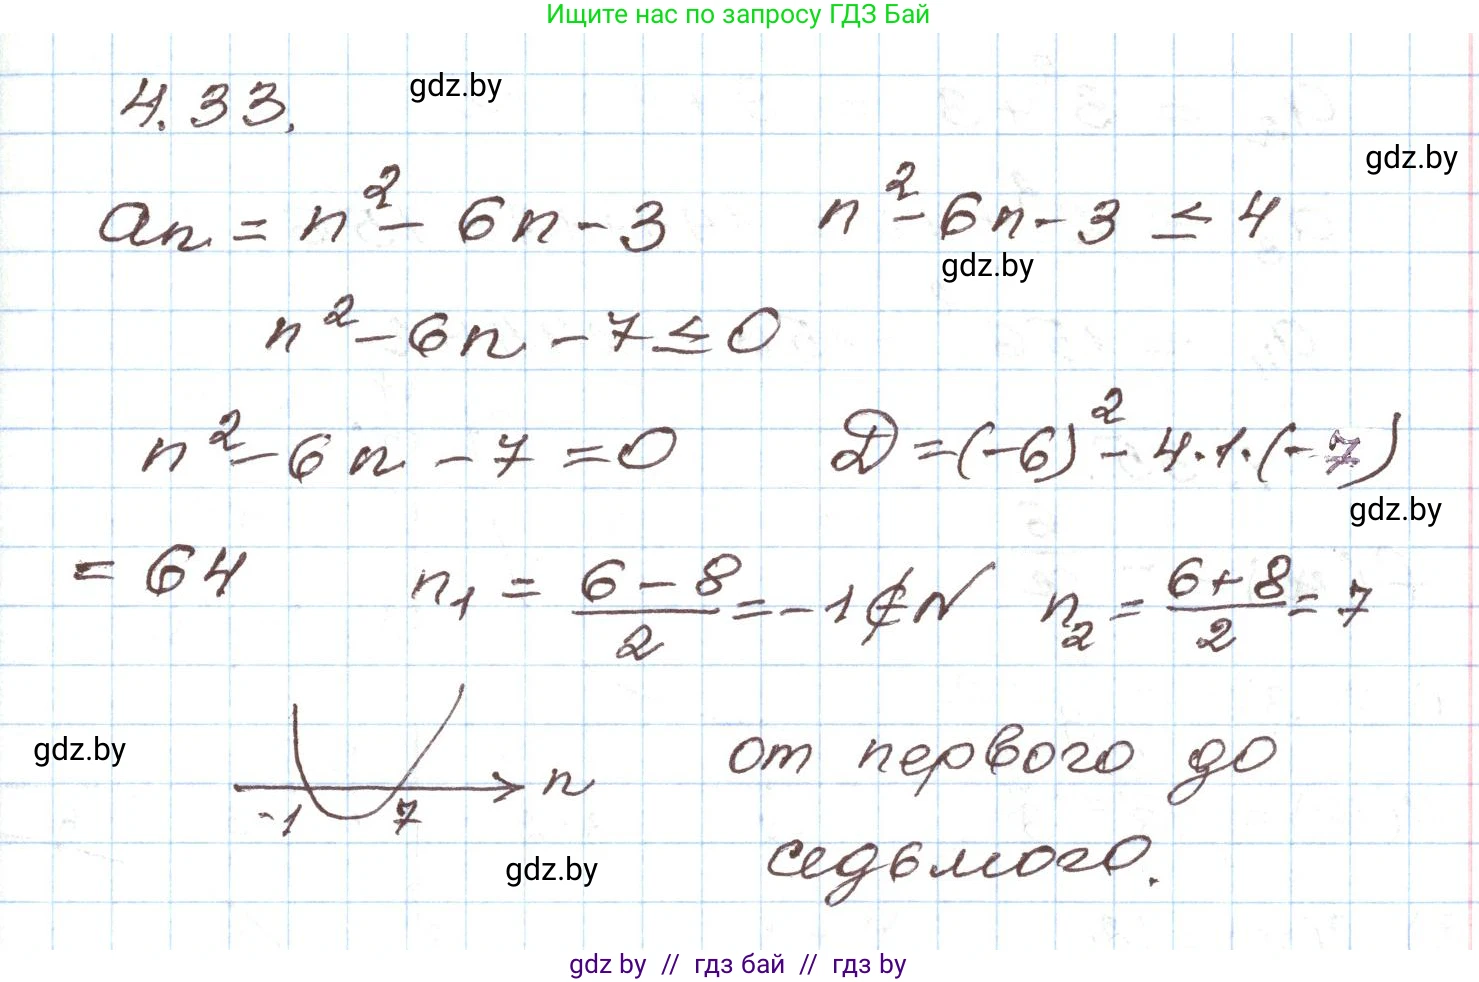 Ищите нас по запросу ГДЗ Бай
4.33.
gdz.by
gdz.by
aₙ = n² - 6n - 3    n² - 6n - 3 ≤ 4
gdz.by
n² - 6n - 7 ≤ 0
n² - 6n - 7 = 0    D = (-6)² - 4·1·(-7)
gdz.by
= 64    n₁ = (6 - 8)/2 = -1 ∉ N    n₂ = (6 + 8)/2 = 7
gdz.by
n
-1    7
от первого до
седьмого.
gdz.by
gdz by // гдз бай // гдз by